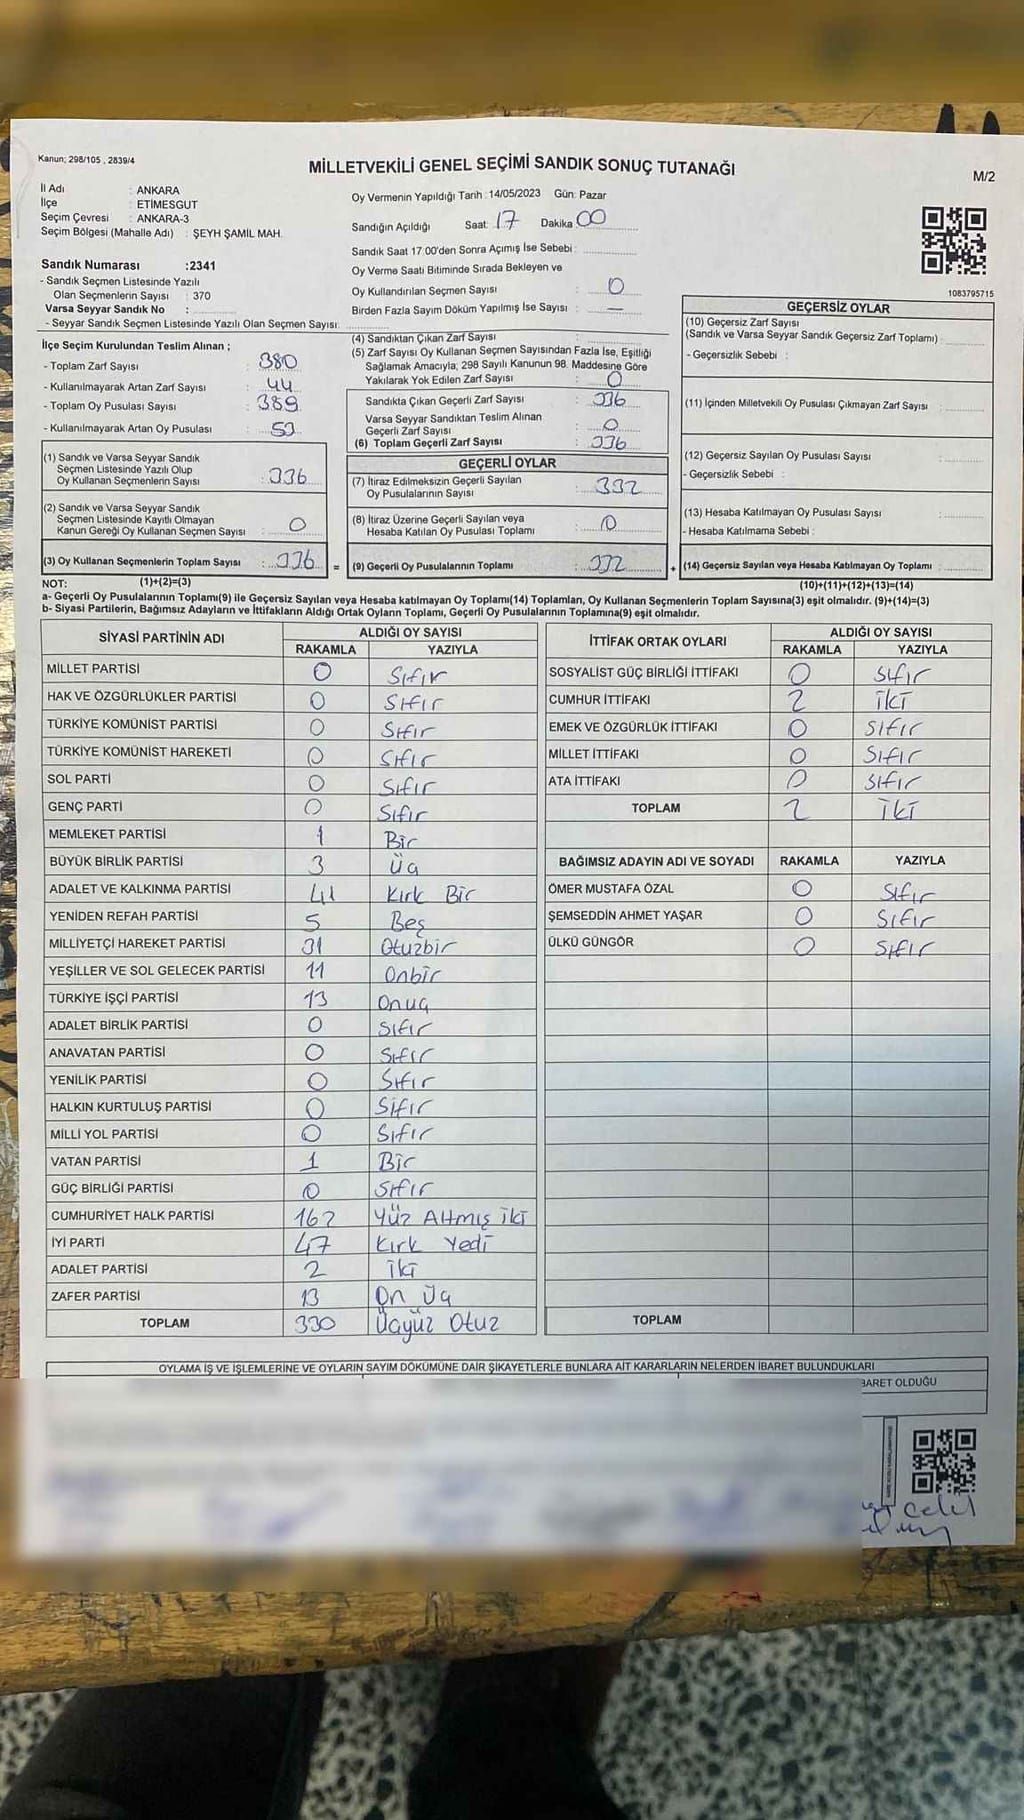 Kanun; 298/105 , 2839/4
MİLLETVEKİLİ GENEL SEÇİMİ SANDIK SONUÇ TUTANAĞI
M/2
İl Adı : ANKARA
İlçe : ETİMESGUT
Seçim Çevresi : ANKARA-3
Seçim Bölgesi (Mahalle Adı) : ŞEYH ŞAMİL MAH.
Sandık Numarası :2341
- Sandık Seçmen Listesinde Yazılı
Olan Seçmenlerin Sayısı : 370
Varsa Seyyar Sandık No :
- Seyyar Sandık Seçmen Listesinde Yazılı Olan Seçmen Sayısı:
Oy Vermenin Yapıldığı Tarih :14/05/2023 Gün: Pazar
Sandığın Açıldığı Saat: 17 Dakika 00
Sandık Saat 17 00'den Sonra Açımış İse Sebebi :
Oy Verme Saati Bitiminde Sırada Bekleyen ve
Oy Kullandırılan Seçmen Sayısı : 0
Birden Fazla Sayım Döküm Yapılmış İse Sayısı : —
1083795715
İlçe Seçim Kurulundan Teslim Alınan ;
- Toplam Zarf Sayısı : 380
- Kullanılmayarak Artan Zarf Sayısı : 44
- Toplam Oy Pusulası Sayısı : 389
- Kullanılmayarak Artan Oy Pusulası : 53
(1) Sandık ve Varsa Seyyar Sandık
Seçmen Listesinde Yazılı Olup
Oy Kullanan Seçmenlerin Sayısı : 336
(2) Sandık ve Varsa Seyyar Sandık
Seçmen Listesinde Kayıtlı Olmayan
Kanun Gereği Oy Kullanan Seçmen Sayısı : 0
(3) Oy Kullanan Seçmenlerin Toplam Sayısı : 336 =
(4) Sandıktan Çıkan Zarf Sayısı :
(5) Zarf Sayısı Oy Kullanan Seçmen Sayısından Fazla İse, Eşitliği
Sağlamak Amacıyla; 298 Sayılı Kanunun 98. Maddesine Göre
Yakılarak Yok Edilen Zarf Sayısı : 0
Sandıkta Çıkan Geçerli Zarf Sayısı : 336
Varsa Seyyar Sandıktan Teslim Alınan
Geçerli Zarf Sayısı : 0
(6) Toplam Geçerli Zarf Sayısı : 336
GEÇERLİ OYLAR
(7) İtiraz Edilmeksizin Geçerli Sayılan
Oy Pusulalarının Sayısı : 332
(8) İtiraz Üzerine Geçerli Sayılan veya
Hesaba Katılan Oy Pusulası Toplamı : 0
(9) Geçerli Oy Pusulalarının Toplamı : 332 +
GEÇERSİZ OYLAR
(10) Geçersiz Zarf Sayısı
(Sandık ve Varsa Seyyar Sandık Geçersiz Zarf Toplamı) :
- Geçersizlik Sebebi :
(11) İçinden Milletvekili Oy Pusulası Çıkmayan Zarf Sayısı :
(12) Geçersiz Sayılan Oy Pusulası Sayısı :
- Geçersizlik Sebebi :
(13) Hesaba Katılmayan Oy Pusulası Sayısı :
- Hesaba Katılmama Sebebi :
(14) Geçersiz Sayılan veya Hesaba Katılmayan Oy Toplamı :
NOT: (1)+(2)=(3) (10)+(11)+(12)+(13)=(14)
a- Geçerli Oy Pusulalarının Toplamı(9) ile Geçersiz Sayılan veya Hesaba katılmayan Oy Toplamı(14) Toplamları, Oy Kullanan Seçmenlerin Toplam Sayısına(3) eşit olmalıdır. (9)+(14)=(3)
b- Siyasi Partilerin, Bağımsız Adayların ve İttifakların Aldığı Ortak Oyların Toplamı, Geçerli Oy Pusulalarının Toplamına(9) eşit olmalıdır.
SİYASİ PARTİNİN ADI ALDIĞI OY SAYISI
RAKAMLA YAZIYLA
MİLLET PARTİSİ 0 Sıfır
HAK VE ÖZGÜRLÜKLER PARTİSİ 0 Sıfır
TÜRKİYE KOMÜNİST PARTİSİ 0 Sıfır
TÜRKİYE KOMÜNİST HAREKETİ 0 Sıfır
SOL PARTİ 0 Sıfır
GENÇ PARTİ 0 Sıfır
MEMLEKET PARTİSİ 1 Bir
BÜYÜK BİRLİK PARTİSİ 3 Üç
ADALET VE KALKINMA PARTİSİ 41 Kırk Bir
YENİDEN REFAH PARTİSİ 5 Beş
MİLLİYETÇİ HAREKET PARTİSİ 31 Otuzbir
YEŞİLLER VE SOL GELECEK PARTİSİ 11 Onbir
TÜRKİYE İŞÇİ PARTİSİ 13 Onüç
ADALET BİRLİK PARTİSİ 0 Sıfır
ANAVATAN PARTİSİ 0 Sıfır
YENİLİK PARTİSİ 0 Sıfır
HALKIN KURTULUŞ PARTİSİ 0 Sıfır
MİLLİ YOL PARTİSİ 0 Sıfır
VATAN PARTİSİ 1 Bir
GÜÇ BİRLİĞİ PARTİSİ 0 Sıfır
CUMHURİYET HALK PARTİSİ 162 Yüz Altmış iki
İYİ PARTİ 47 Kırk Yedi
ADALET PARTİSİ 2 İki
ZAFER PARTİSİ 13 On Üç
TOPLAM 330 Üçyüz Otuz
İTTİFAK ORTAK OYLARI ALDIĞI OY SAYISI
RAKAMLA YAZIYLA
SOSYALİST GÜÇ BİRLİĞİ İTTİFAKI 0 Sıfır
CUMHUR İTTİFAKI 2 İki
EMEK VE ÖZGÜRLÜK İTTİFAKI 0 Sıfır
MİLLET İTTİFAKI 0 Sıfır
ATA İTTİFAKI 0 Sıfır
TOPLAM 2 İki
BAĞIMSIZ ADAYIN ADI VE SOYADI RAKAMLA YAZIYLA
ÖMER MUSTAFA ÖZAL 0 Sıfır
ŞEMSEDDİN AHMET YAŞAR 0 Sıfır
ÜLKÜ GÜNGÖR 0 Sıfır
TOPLAM
OYLAMA İŞ VE İŞLEMLERİNE VE OYLARIN SAYIM DÖKÜMÜNE DAİR ŞİKAYETLERLE BUNLARA AİT KARARLARIN NELERDEN İBARET BULUNDUKLARI
BARET OLDUĞU